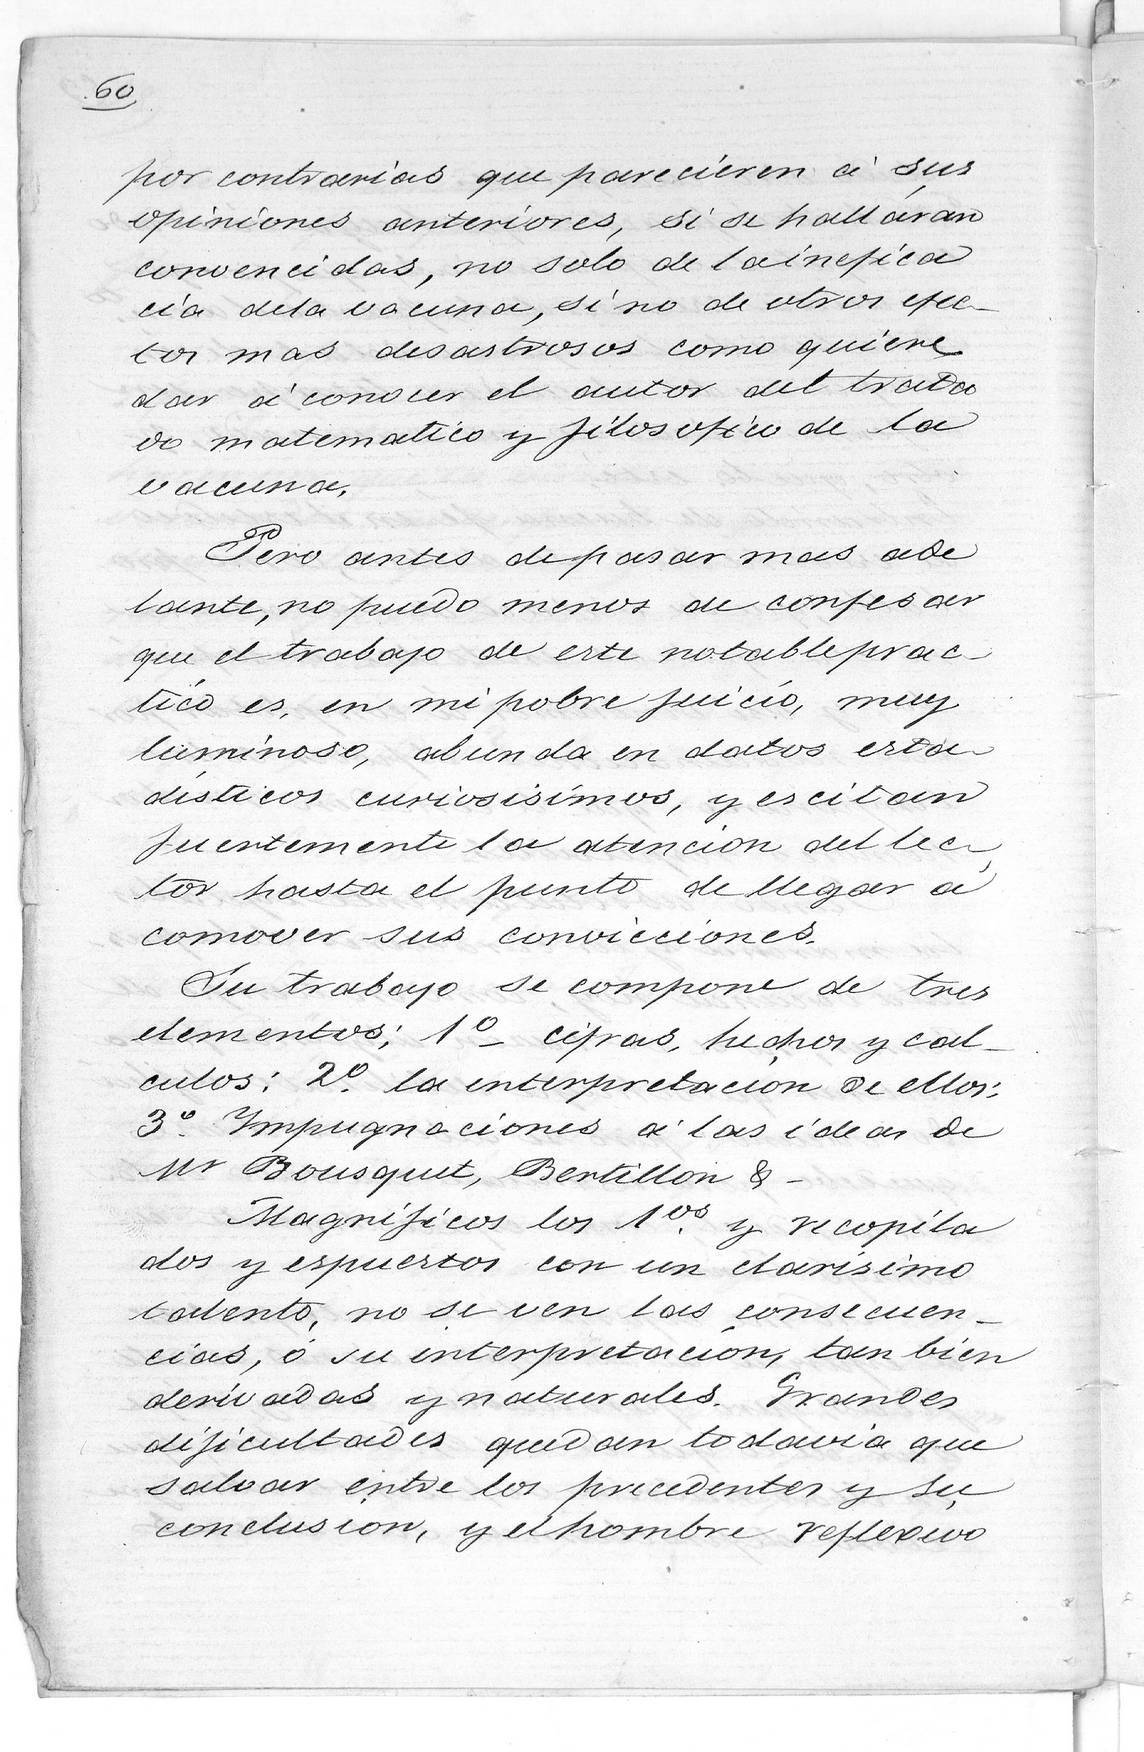 60
por contrarias que parecieren á sus
opiniones anteriores, si se hallaran
convencidas, no solo de la inefica
cia de la vacuna, sino de otros efec-
tos mas desastrosos como quiere
dar á conocer el autor del trata
do matematico y filosofico de la
vacuna.
Pero antes de pasar mas ade
lante, no puedo menos de confesar
que el trabajo de este notable prac-
tico es, en mi pobre juicio, muy
luminoso, abunda en datos esta-
disticos curiosisimos, y escitan
fuertemente la atencion del lec-
tor hasta el punto de llegar á
comover sus convicciones.
Su trabajo se compone de tres
elementos; 1º- cifras, hechos y cal-
culos: 2º. la interpretacion de ellos:
3º. Impugnaciones á las ideas de
Mr Bousquet, Bertillon & -
Magnificos los 1os. y recopila
dos y espuestos con un clarisimo
talento, no se ven las consecuen-
cias, ó su interpretacion, tan bien
derivadas y naturales. Grandes
dificultades quedan todavia que
salvar entre los precedentes y su
conclusion, y el hombre reflexivo